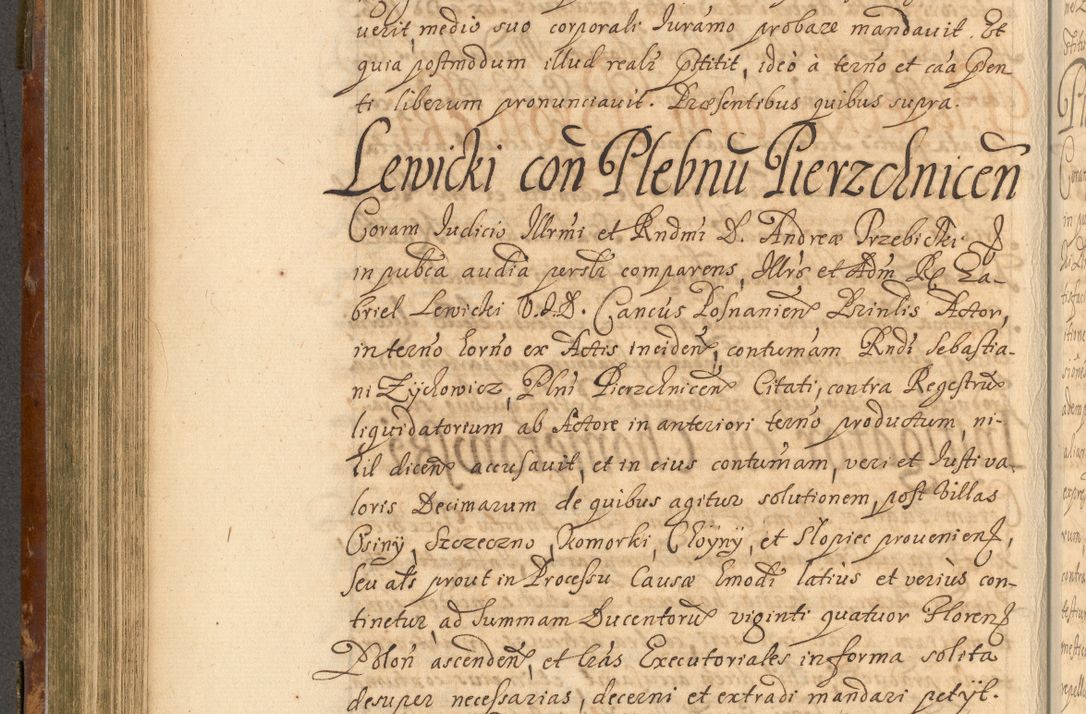 uerit, medio suo corporali Iuramo probare mandauit. Et
quia postmodum illud reali pstitit, ideo à terño et caã Pñen
ti liberum pronunciauit. Præsentibus quibus supra.
Lewicki coñ Plebnũ Pierzchniceñ
Coram Iudicio Illrmi et Rndmi D. Andreæ Trzebicki
in pubca audia persli comparens, Illrs et Adm R Ga-
briel Lewicki V.I.D. Cancus Posnanien Prinlis Actor,
in terño horño ex Actis inciden, contumam Rndi Sebastia-
ni Zychowicz, Plni Pierzchniceñ Citati, contra Regestrũ
liquidatorium ab Actore in anteriori terño productum, ni-
hil diceñ accusauit, et in eius contumam, veri et Iusti va-
loris Decimarum de quibus agitur solutionem, post Villas
Osiny, Szczeczno, Komorki, Choyny, et Slopiec prouenien,
seu als prout in Processu Causæ Emodi latius et verius con-
tinetur, ad Summam Ducentorũ viginti quatuor Floren
Poloñ ascendeñ, et Lras Executoriales in forma solita
desuper necessarias, decerni et extradi mandari petyt.